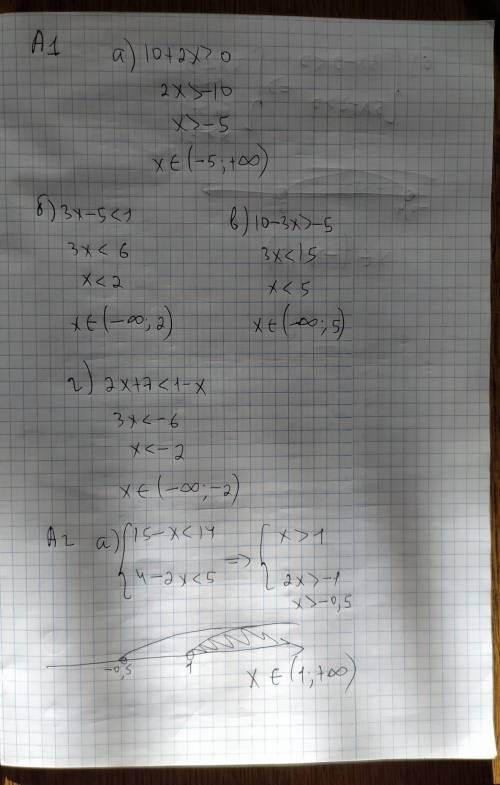 A1
а) 10+2x>0
2x>-10
x>-5
x∈(-5;+∞)
б) 3x-5<1
3x<6
x<2
x∈(-∞;2)
в) 10-3x>-5
3x<15
x<5
x∈(-∞;5)
г) 2x+7<1-x
3x<-6
x<-2
x∈(-∞;-2)
A2 а) {15-x<14 => {x>1
4-2x<5 2x>-1
x>-0,5
-0,5 1
x∈(1;+∞)